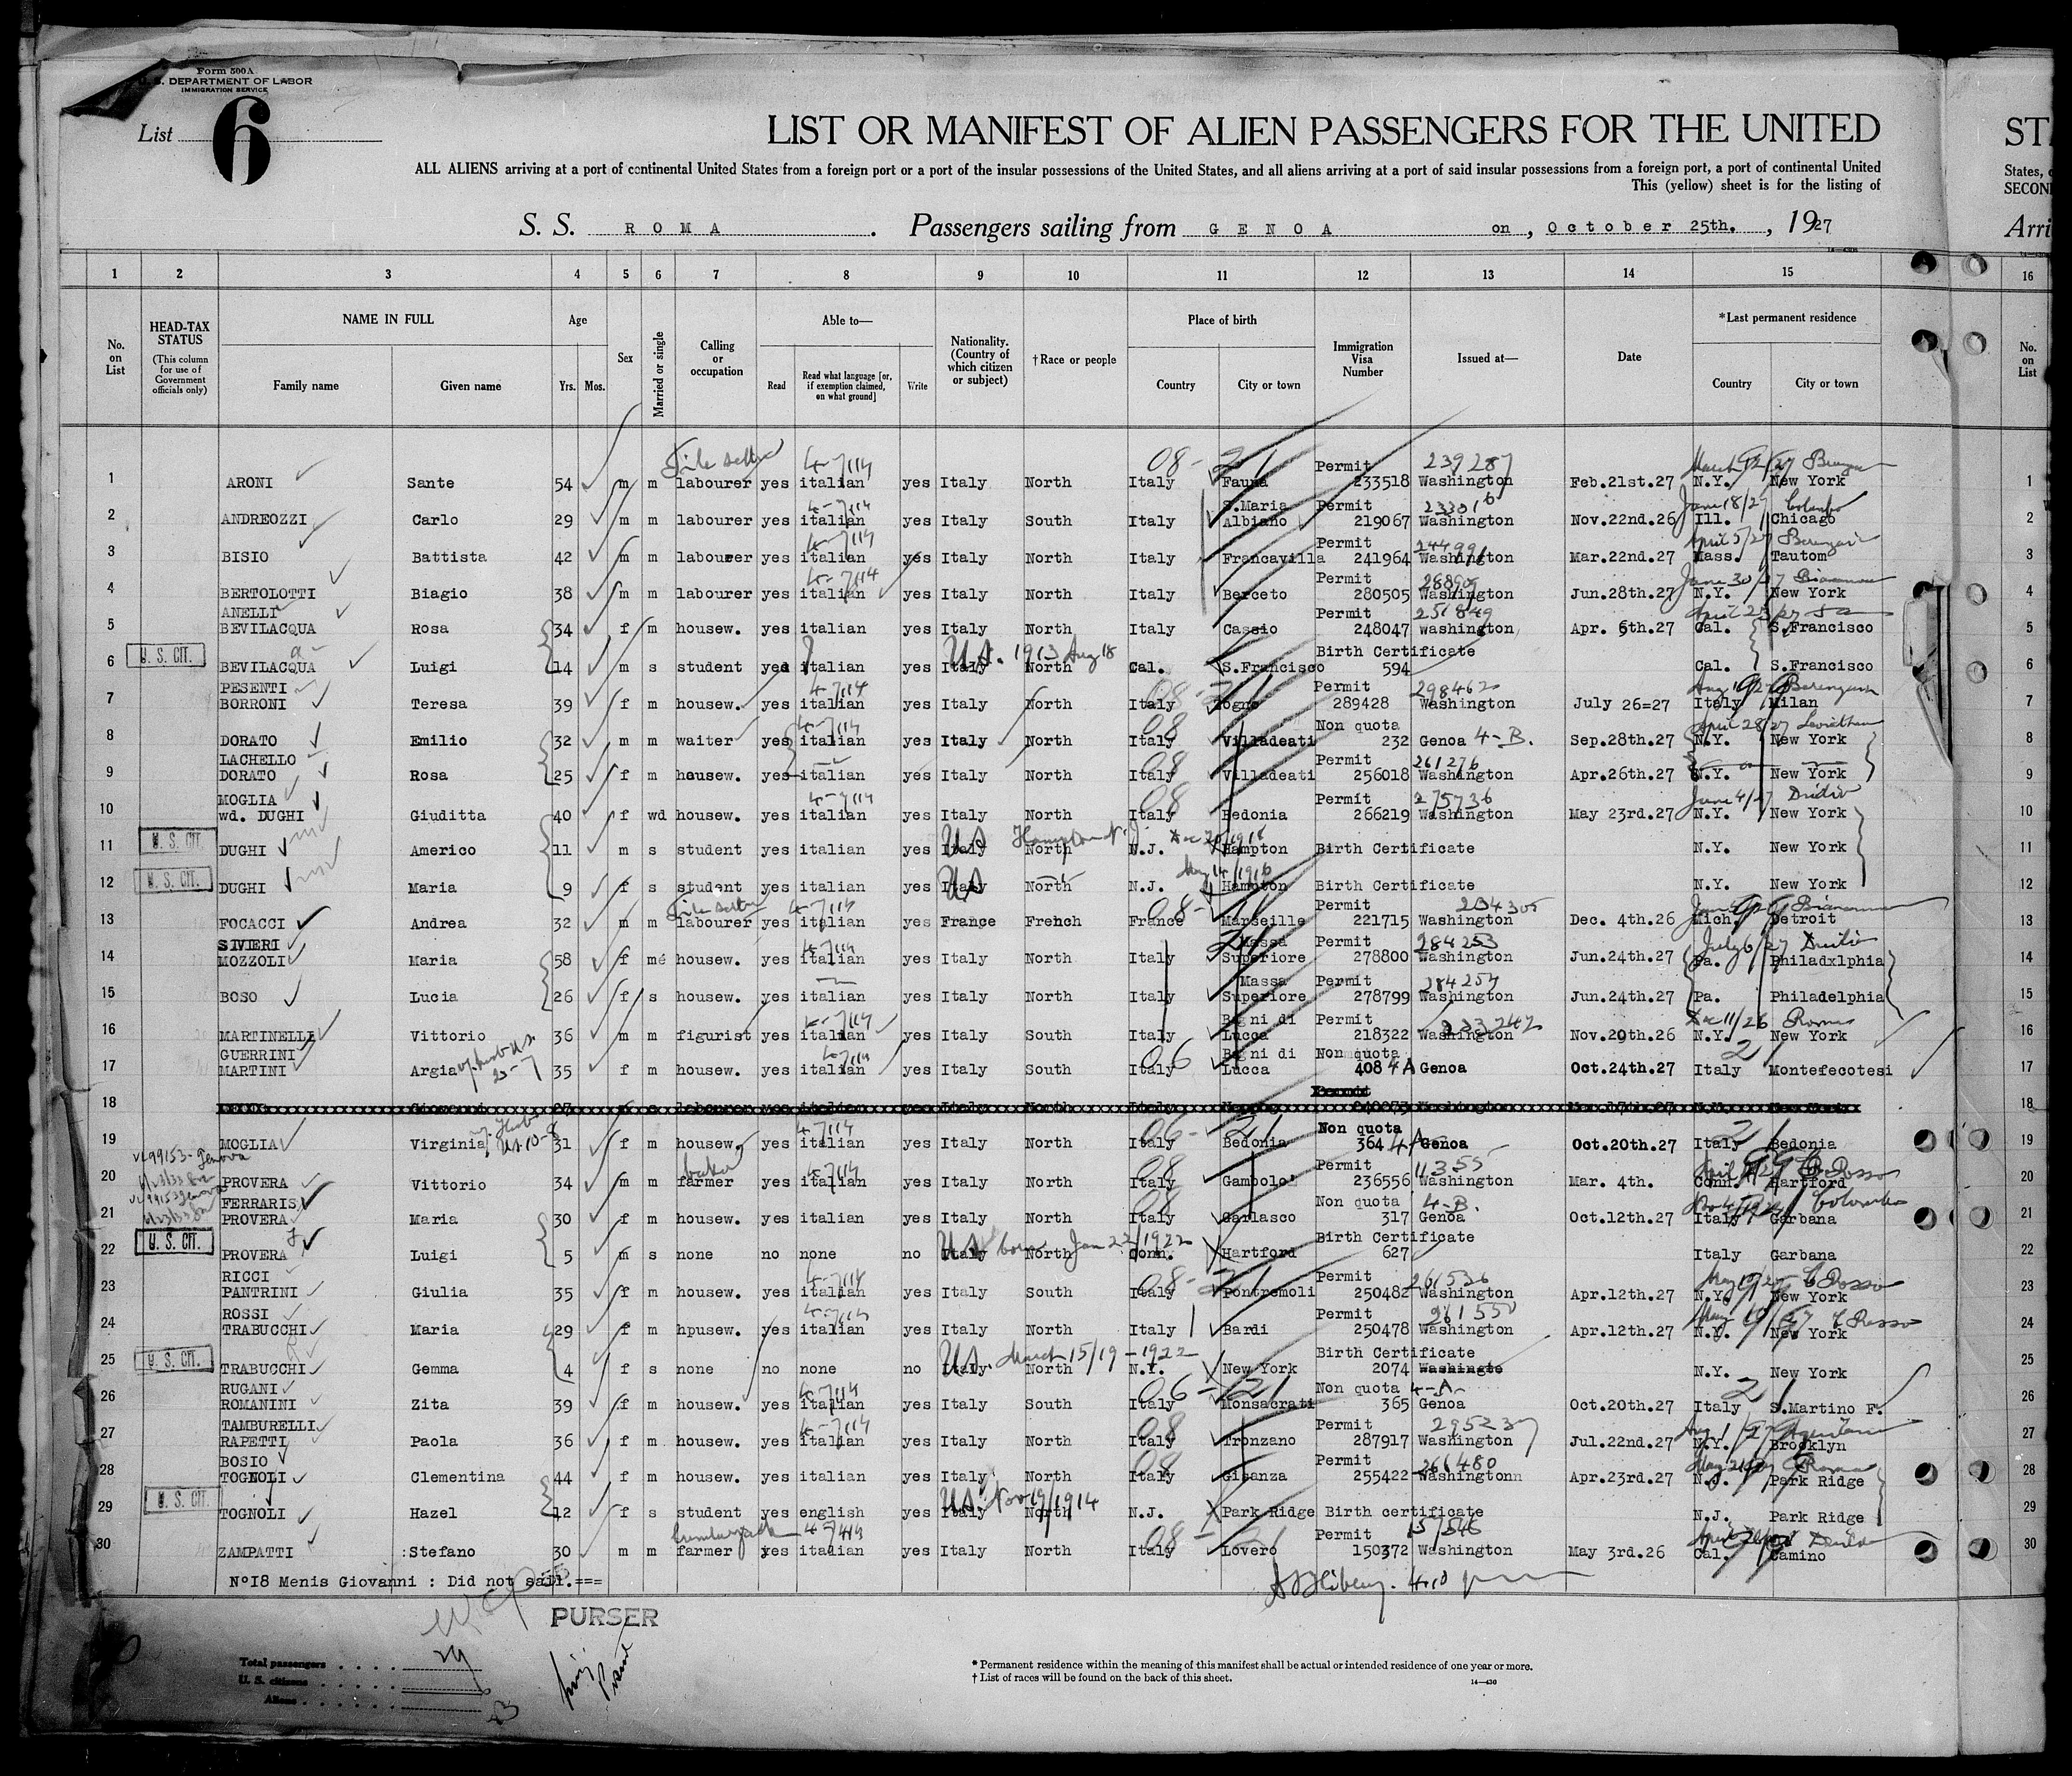 Form 500A
U. S. DEPARTMENT OF LABOR
IMMIGRATION SERVICE
List 6
LIST OR MANIFEST OF ALIEN PASSENGERS FOR THE UNITED
ST
ALL ALIENS arriving at a port of continental United States from a foreign port or a port of the insular possessions of the United States, and all aliens arriving at a port of said insular possessions from a foreign port, a port of continental United
States,
This (yellow) sheet is for the listing of
SECON
S. S. ROMA. Passengers sailing from GENOA on, October 25th., 1927
Arri
1 2 3 4 5 6 7 8 9 10 11 12 13 14 15 16
No. on List
HEAD-TAX STATUS (This column for use of Government officials only)
NAME IN FULL
Family name Given name
Age
Yrs. Mos.
Sex
Married or single
Calling or occupation
Able to—
Read
Read what language [or, if exemption claimed, on what ground]
Write
Nationality. (Country of which citizen or subject)
†Race or people
Place of birth
Country City or town
Immigration Visa Number
Issued at—
Date
*Last permanent residence
Country City or town
No. on List
Tile setter 4-7114 08-21 Permit 239287 March 12/27
1 ARONI Sante 54 m m labourer yes italian yes Italy North Italy Fauna 233518 Washington Feb.21st.27 N.Y. New York 1
4-7114 S.Maria Permit 233016 June 18/27 Colombo
2 ANDREOZZI Carlo 29 m m labourer yes italian yes Italy South Italy Albiano 219067 Washington Nov.22nd.26 Ill. Chicago 2
4-7114 Permit 244991 April 5/27
3 BISIO Battista 42 m m labourer yes italian yes Italy North Italy Francavilla 241964 Washington Mar.22nd.27 Mass. Tautom 3
4-7114 Permit 288909 June 30/27
4 BERTOLOTTI Biagio 38 m m labourer yes italian yes Italy North Italy Berceto 280505 Washington Jun.28th.27 N.Y. New York 4
ANELLI Permit 251849 April 23/27
5 BEVILACQUA Rosa 34 f m housew. yes italian yes Italy North Italy Cassio 248047 Washington Apr. 6th.27 Cal. S.Francisco 5
U. S. CIT. U.S. 1913 Aug 18 Birth Certificate
6 BEVILACQUA Luigi 14 m s student yes italian yes Italy North Cal. S.Francisco 594 Cal. S.Francisco 6
PESENTI 4-7114 08-21 Permit 298462 Berengaria
7 BORRONI Teresa 39 f m housew. yes italian yes Italy North Italy 289428 Washington July 26=27 Italy Milan 7
4-7114 08 Non quota April 28/27 Leviathan
8 DORATO Emilio 32 m m waiter yes italian yes Italy North Italy Villadeati 232 Genoa 4-B. Sep.28th.27 N.Y. New York 8
LACHELLO 08 Permit 261276
9 DORATO Rosa 25 f m housew. yes italian yes Italy North Italy Villadeati 256018 Washington Apr.26th.27 N.Y. New York 9
MOGLIA 4-7114 08 Permit 275736 June 4/27 Duilio
10 wd. DUGHI Giuditta 40 f wd housew. yes italian yes Italy North Italy Bedonia 266219 Washington May 23rd.27 N.Y. New York 10
U. S. CIT. US Hampton N.J.
11 DUGHI Americo 11 m s student yes italian yes Italy North N.J. Hampton Birth Certificate N.Y. New York 11
U. S. CIT. US May 14/1916
12 DUGHI Maria 9 f s student yes italian yes Italy North N.J. Hampton Birth Certificate N.Y. New York 12
Tile setter 4-7114 08-21 Permit 234305
13 FOCACCI Andrea 32 m m labourer yes italian yes France French France Marseille 221715 Washington Dec. 4th.26 Mich. Detroit 13
SIVIERI 4-7114 Massa Permit 284253 July 6/27 Duilio
14 MOZZOLI Maria 58 f mé housew. yes italian yes Italy North Italy Superiore 278800 Washington Jun.24th.27 Pa. Philadxlphia 14
Massa Permit 284254
15 BOSO Lucia 26 f s housew. yes italian yes Italy North Italy Superiore 278799 Washington Jun.24th.27 Pa. Philadelphia 15
4-7114 Bagni di Permit 233242 Dec 11/26 Roma
16 MARTINELLI Vittorio 36 m m figurist yes italian yes Italy South Italy Lucca 218322 Washington Nov.20th.26 N.Y. New York 16
GUERRINI 4-7114 06 Bagni di Non quota 21
17 MARTINI Argia 35 f m housew. yes italian yes Italy South Italy Lucca 408 4A Genoa Oct.24th.27 Italy Montefecotesi 17
18 18
4-7114 06-21 Non quota 21
19 MOGLIA Virginia 31 f m housew. yes italian yes Italy North Italy Bedonia 364 4A Genoa Oct.20th.27 Italy Bedonia 19
baker 4-7114 08 Permit
20 PROVERA Vittorio 34 m m farmer yes italian yes Italy North Italy Gambolo' 236556 Washington Mar. 4th. Conn. Hartford 20
FERRARIS 08 Non quota 4-B. Colombo
21 PROVERA Maria 30 f m housew. yes italian yes Italy North Italy Garlasco 317 Genoa Oct.12th.27 Italy Garbana 21
U. S. CIT. US born Jan 22/1922 Birth Certificate
22 PROVERA Luigi 5 m s none no none no Italy North Conn. Hartford 627 Italy Garbana 22
RICCI 4-7114 08-21 Permit 261536
23 PANTRINI Giulia 35 f m housew. yes italian yes Italy South Italy Pontremoli 250482 Washington Apr.12th.27 N.Y. New York 23
ROSSI 4-7114 Permit 261550
24 TRABUCCHI Maria 29 f m hpusew. yes italian yes Italy North Italy Bardi 250478 Washington Apr.12th.27 N.Y. New York 24
U. S. CIT. US. March 15/19-1922 Birth Certificate
25 TRABUCCHI Gemma 4 f s none no none no Italy North N.Y. New York 2074 Washingto N.Y. New York 25
RUGANI 4-7114 06-21 Non quota 4-A- 21
26 ROMANINI Zita 39 f m housew. yes italian yes Italy South Italy Monsacrati 365 Genoa Oct.20th.27 Italy S.Martino F. 26
TAMBURELLI 4-7114 08 Permit 295237
27 RAPETTI Paola 36 f m housew. yes italian yes Italy North Italy Tronzano 287917 Washington Jul.22nd.27 N.Y. Brooklyn 27
BOSIO 08 Permit 266480 Roma
28 TOGNOLI Clementina 44 f m housew. yes italian yes Italy North Italy Gisanza 255422 Washingtonn Apr.23rd.27 N.J. Park Ridge 28
U. S. CIT. US. Nov 19/1914
29 TOGNOLI Hazel 12 f s student yes english yes Italy North N.J. Park Ridge Birth certificate N.J. Park Ridge 29
Lumberjack 4-7114 08-21 Permit 157546
30 ZAMPATTI :Stefano 30 m m farmer yes italian yes Italy North Italy Lovero 150372 Washington May 3rd.26 Cal. Camino 30
N°18 Menis Giovanni : Did not sail.===
PURSER
Total passengers 29
U. S. citizens 6
Aliens 23
*Permanent residence within the meaning of this manifest shall be actual or intended residence of one year or more.
† List of races will be found on the back of this sheet.
14—430